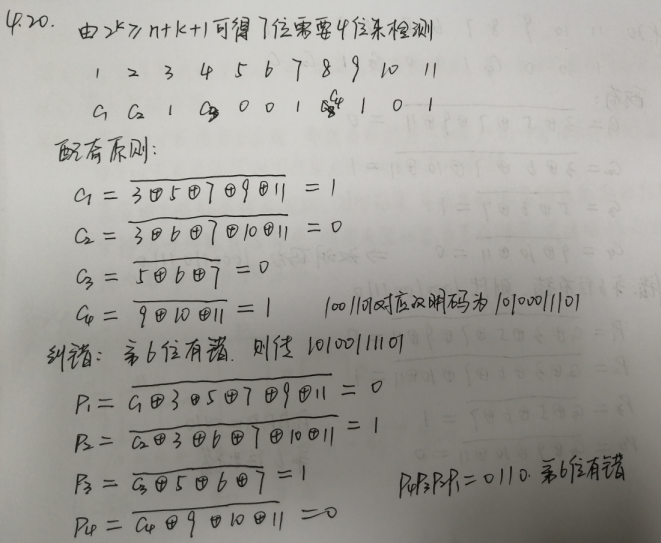 4.20. 由2^k≥n+k+1可得7位需要4位来检测
1 2 3 4 5 6 7 8 9 10 11
C₁ C₂ 1 C₃ 0 0 1 C₄ 1 0 1
配奇原则:
C₁ = \overline{3⊕5⊕7⊕9⊕11} = 1
C₂ = \overline{3⊕6⊕7⊕10⊕11} = 0
C₃ = \overline{5⊕6⊕7} = 0
C₄ = \overline{9⊕10⊕11} = 1 1001101对应汉明码为10100011101
纠错: 第6位有错. 则传 10100111101
P₁ = \overline{C₁⊕3⊕5⊕7⊕9⊕11} = 0
P₂ = \overline{C₂⊕3⊕6⊕7⊕10⊕11} = 1
P₃ = \overline{C₃⊕5⊕6⊕7} = 1
P₄P₃P₂P₁ = 0110. 第6位有错
P₄ = \overline{C₄⊕9⊕10⊕11} = 0